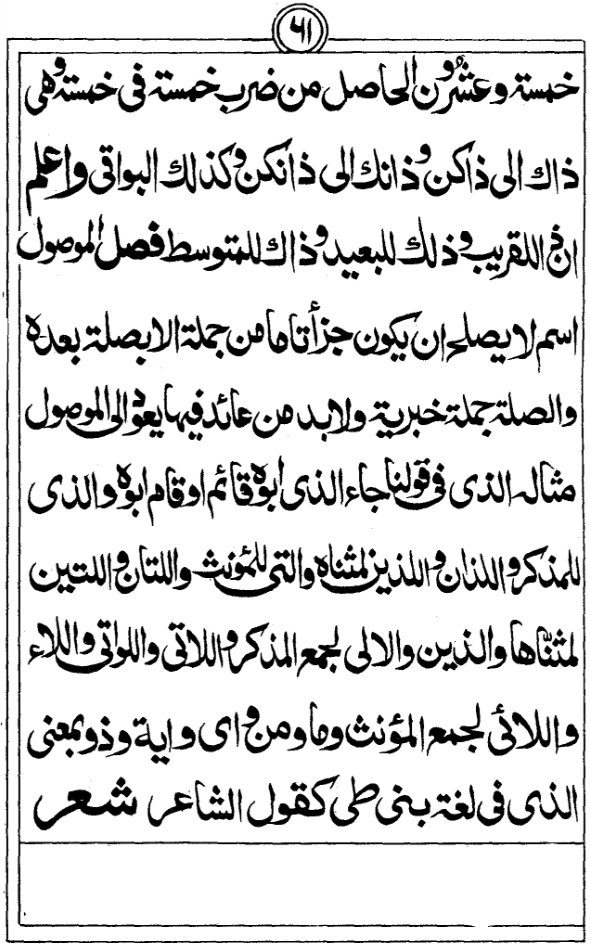 ٤١
خمسة وعشرون الحاصل من ضرب خمسة فى خمسة وهى
ذاك الى ذاكن وذانك الى ذانكن وكذلك البواقى واعلم
ان ذا للقريب وذلك للبعيد وذاك للمتوسط فصل الموصول
اسم لا يصلح ان يكون جزأ تاما من جملة الا بصلة بعده
والصلة جملة خبرية ولا بد من عائد فيها يعود الى الموصول
مثاله الذى فى قولنا جاء الذى ابوه قائم او قام ابوه والذى
للمذكر واللذان واللذين لمثناه والتى للمؤنث واللتان واللتين
لمثناها والذين والالى لجمع المذكر واللاتى واللواتى واللاء
واللائى لجمع المؤنث وما ومن واى واية وذو بمعنى
الذى فى لغة بنى طى كقول الشاعر شعر